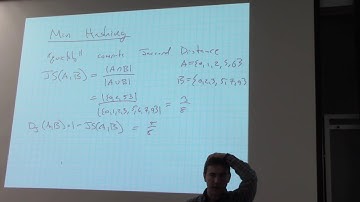 Min Hashing
"quickly" compute Jaccard Distance
A={0,1,2,5,6}
JS(A,B) = |A∩B| / |A∪B|
B={0,2,3,5,7,9}
= |{0,2,5}| / |{0,1,2,3,5,6,7,9}| = 3/8
D_J(A,B) = 1 - JS(A,B) = 5/8